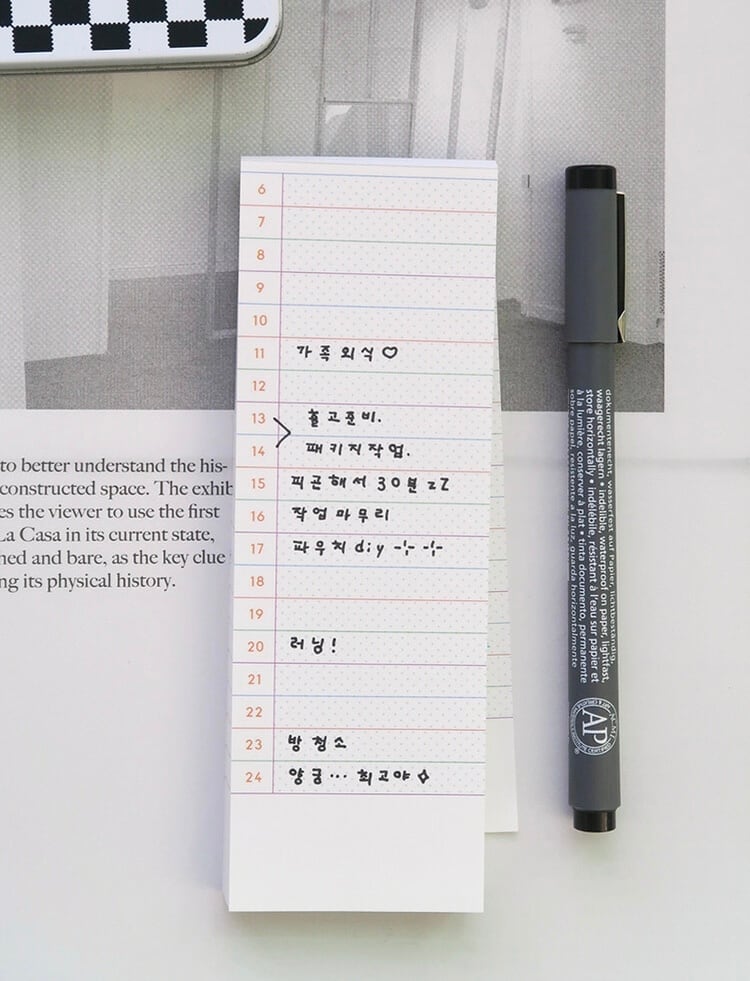 6
7
8
9
10
11 가족외식♡
12
13 출고준비.
14 패키지작업.
15 피곤해서 30분 zZ
16 작업마무리
17 파우치 diy -¦- -¦-
18
19
20 러닝!
21
22
23 방청소
24 양궁... 최고야✧
to better understand the his-
constructed space. The exhib
es the viewer to use the first
La Casa in its current state,
hed and bare, as the key clue
ng its physical history.
dokumentenecht, wasserfest auf Papier, lichtbeständig,
waagerecht lagern • indelible, waterproof on paper, lightfast,
store horizontally • indélébile, résistant à l'eau sur papier et
à la lumière, conserver à plat • tinta documento, permanente
sobre papel, resistente a la luz, guarda horizontalmente
AP